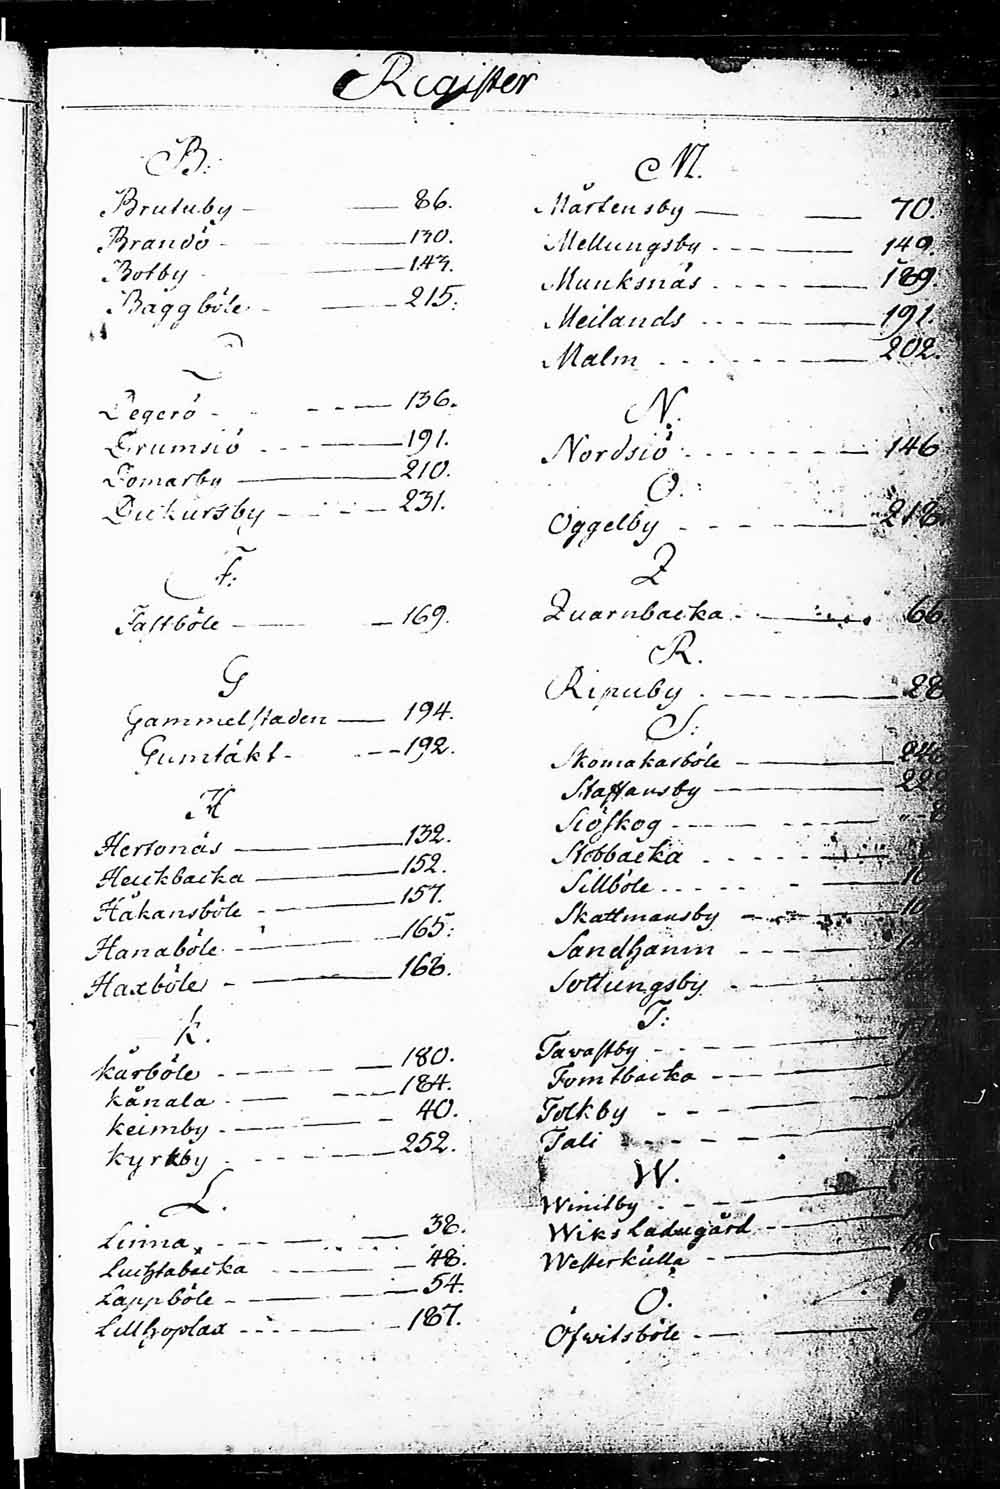 Register
B.
Brutuby 86.
Brandö 130.
Botby 143.
Baggböle 215.
Degerö 136.
Drumsiö 191.
Domarby 210.
Dickursby 231.
F.
Fastböle 169.
G
Gammelstaden 194.
Gumtäkt 192.
H
Hertonäs 132.
Heickbacka 152.
Håkansböle 157.
Hanaböle 165.
Haxböle 168.
K.
Kårböle 180.
Kånala 184.
Keimby 40.
Kyrkby 252.
L.
Linna 38.
Luchtabacka 48.
Lappböle 54.
Lillhoplax 187.
M.
Mårtensby 70.
Mellungsby 149.
Munksnäs 189.
Meilands 191.
Malm 202.
N.
Nordsiö 146
O.
Oggelby 218.
Q
Quarnbacka 66.
R.
Ripuby 28
S.
Skomakarböle
Staffansby
Siöskog
Stobbacka
Sillböle
Skattmansby
Sandhamn
Sottungsby
T:
Tavastby
Tomtbacka
Tolkby
Tali
W.
Winikby
Wiks Ladugård
Westerkulla
Ö.
Öfwitsböle